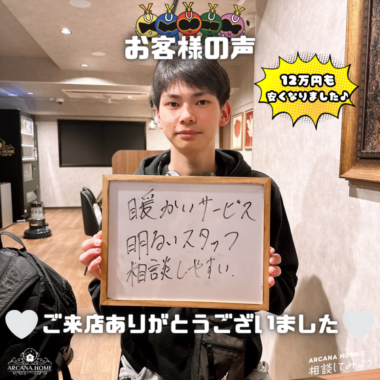 お客様の声
12万円も
安くなりました♪
暖かいサービス
明るいスタッフ
相談しやすい.
ご来店ありがとうございました
ARCANA HOME
ARCANA HOME